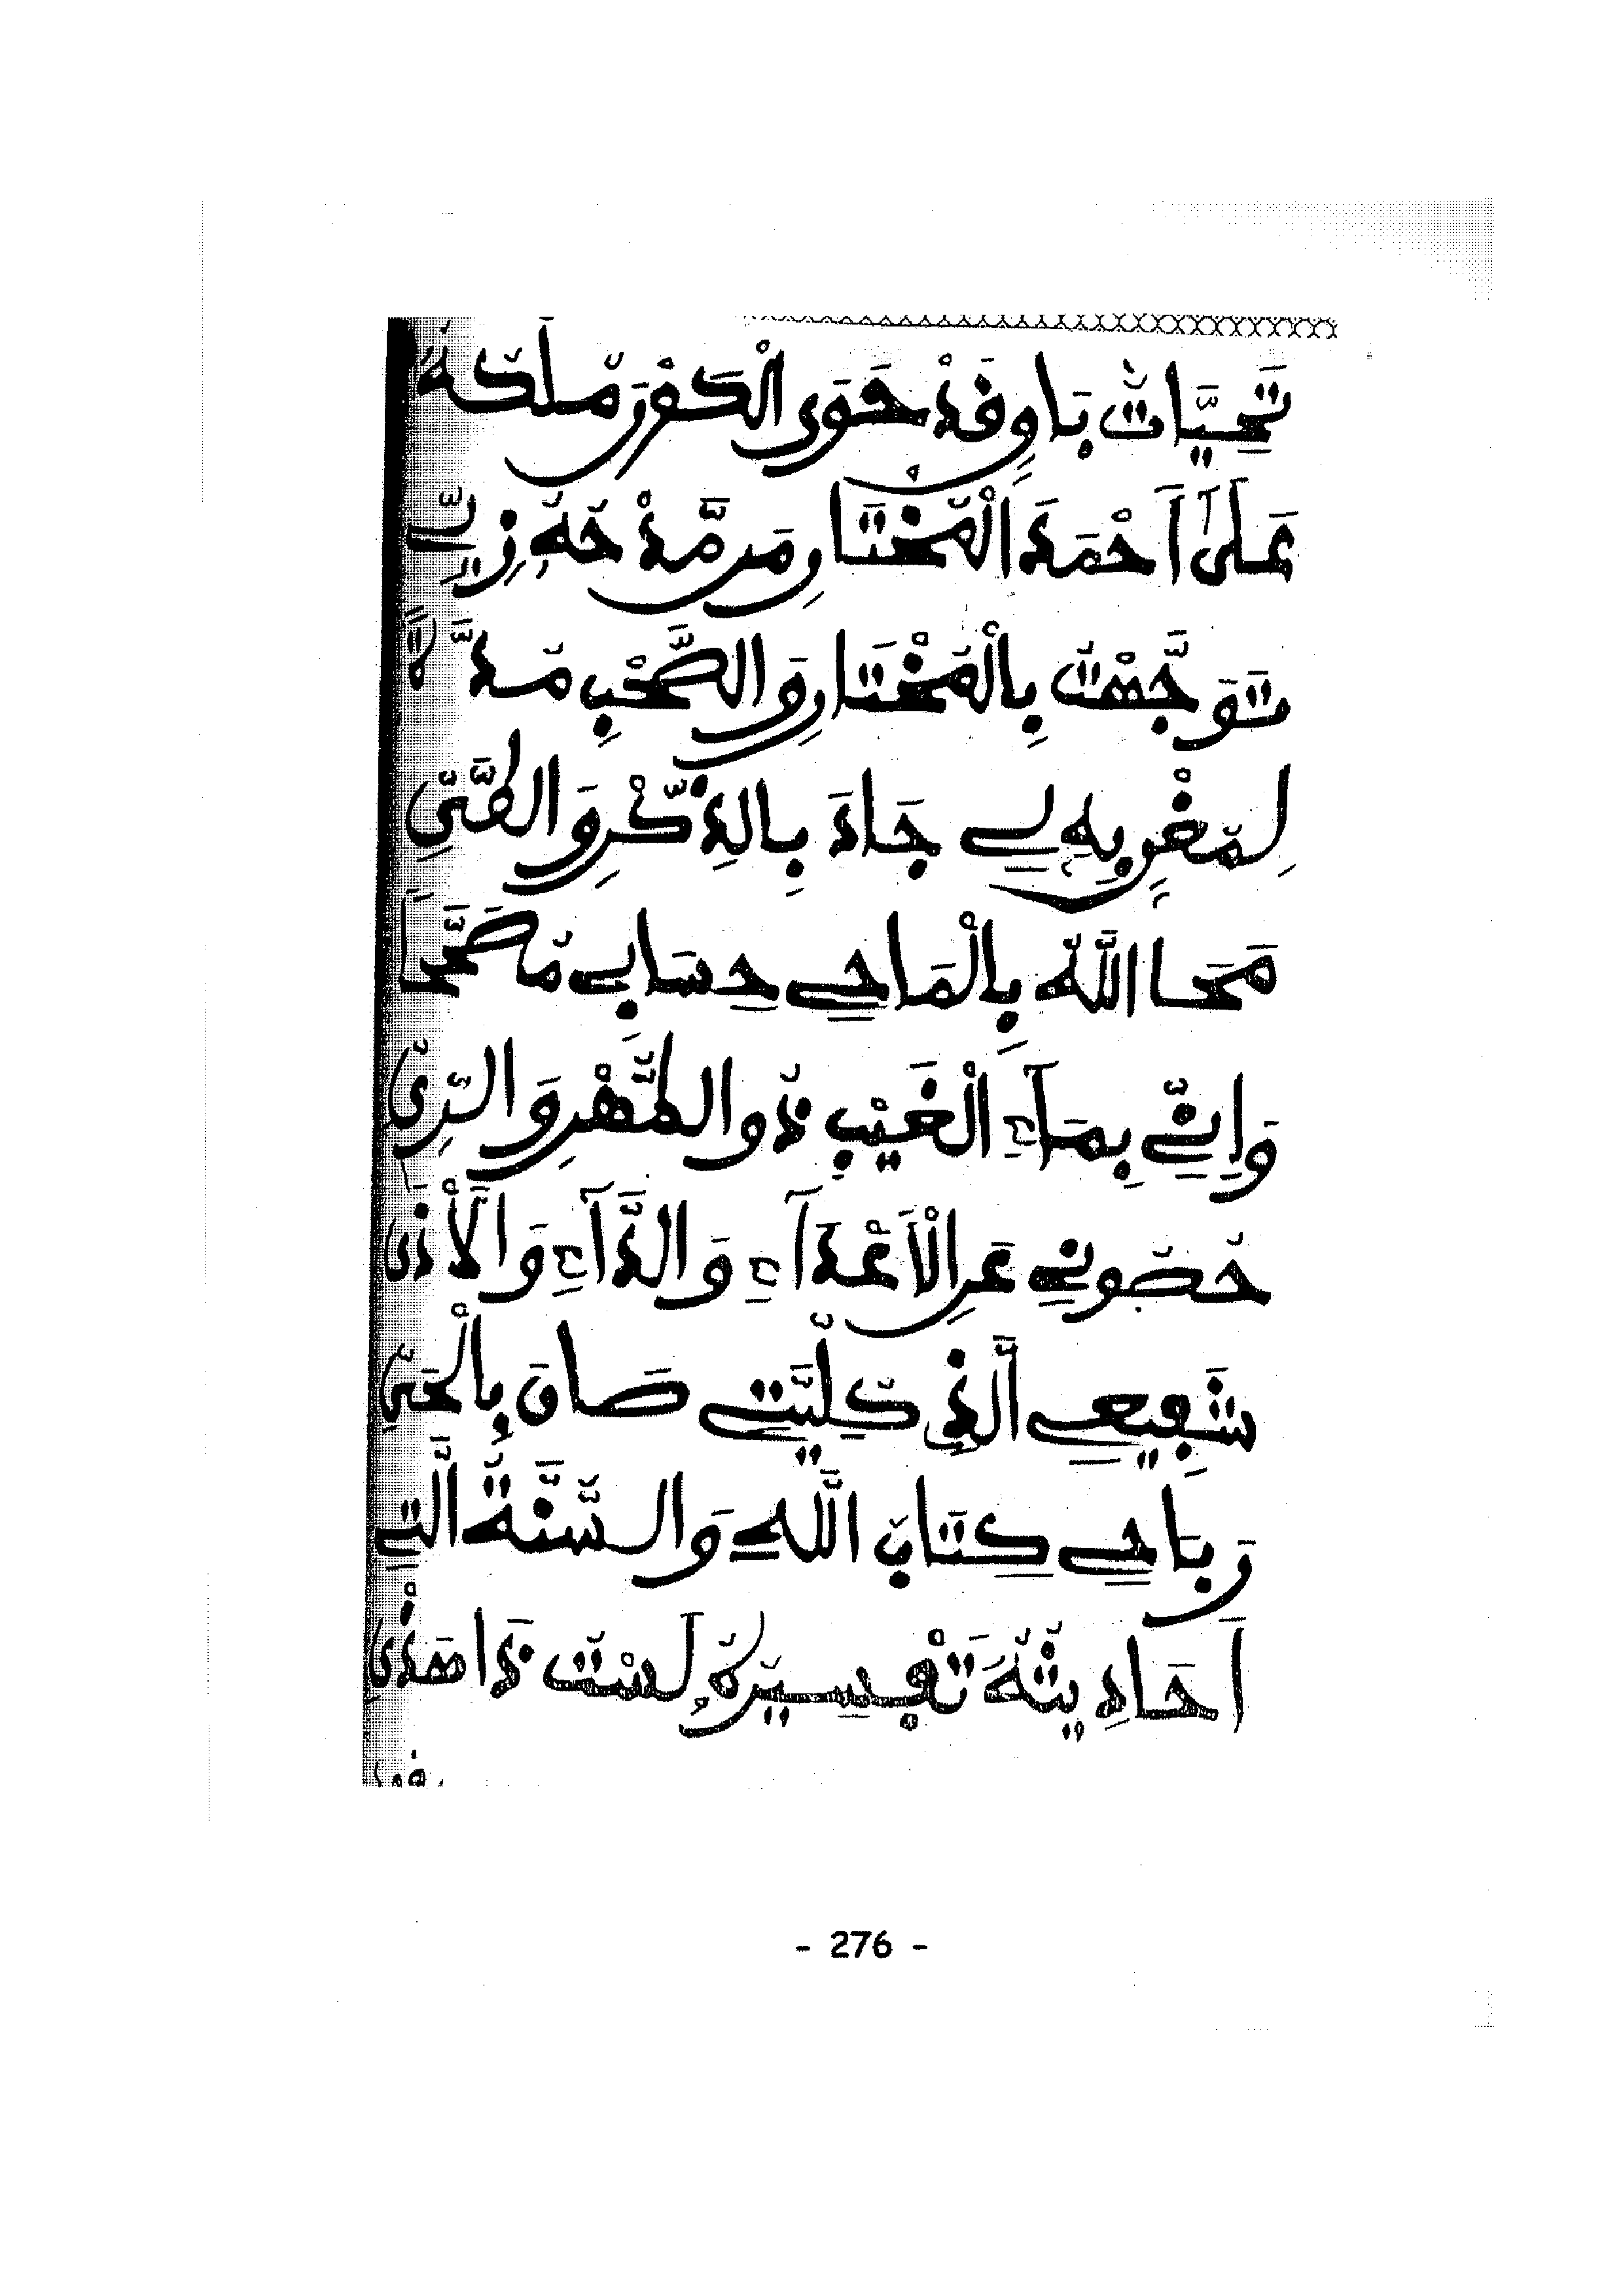 تَحِيَّاتُ بَاوٍ قَدْ حَوَى الْكَوْنَ مُلْكُهُ
عَلَىٰ أَحْمَدَ الْمُخْتَارِ مَن مَّدْحُهُ زِيِّي
تَوَجَّهْتُ بِالْمُخْتَارِ وَالصَّحْبِ
لِمُغْنٍ بِهِ لِي جَادَ بِالذِّكْرِ وَ
مَحَا اللَّهُ بِالْمَاحِي حِسَابِي مُصَحِّحًا
وَإِنِّي بِمَاءِ الْغَيْبِ ذُو الطُّهْرِ وَالرِّيِّ
حُصُونِي عَنِ الْأَعْدَاءِ وَالدَّاءِ وَالْأَذَى
شَفِيعِي الَّذِي كُلِّيَّتِي صَانَ بِالْحَيِّ
وَبَاحِي كِتَابُ اللَّهِ وَالسُّنَّةُ الَّتِي
أَحَادِيثُهُ تَفْسِيرُهُ لَسْتُ ذَا هَذْيِ
- 276 -